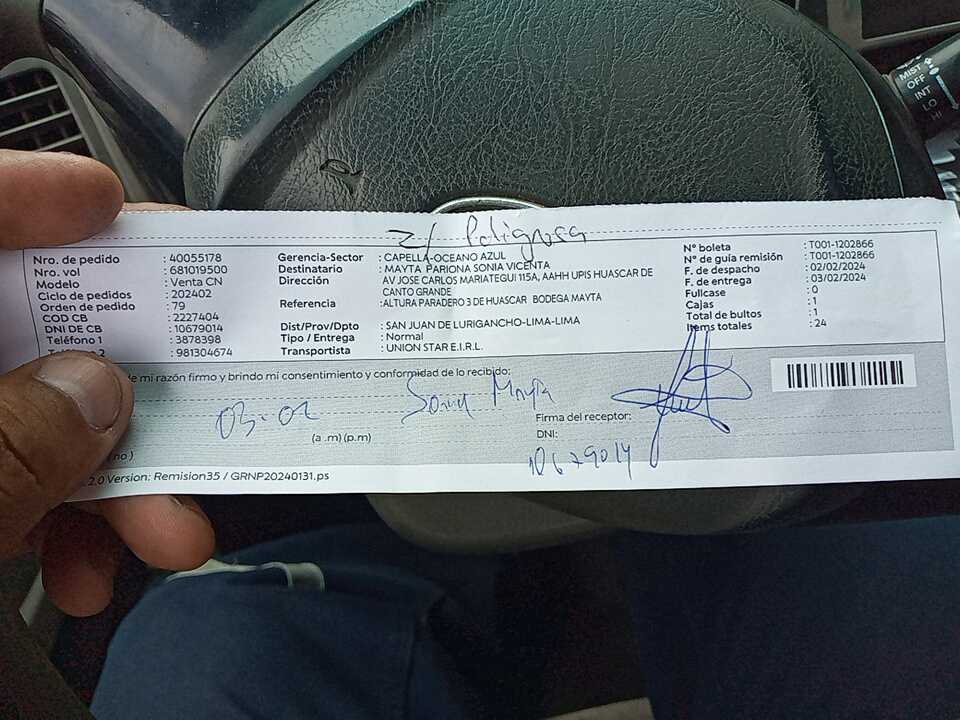 z/ Peligrosa
Nro. de pedido : 40055178
Nro. vol : 681019500
Modelo : Venta CN
Ciclo de pedidos : 202402
Orden de pedido : 79
COD CB : 2227404
DNI DE CB : 10679014
Teléfono 1 : 3878398
2 : 981304674
Gerencia-Sector : CAPELLA-OCEANO AZUL
Destinatario : MAYTA PARIONA SONIA VICENTA
Dirección : AV JOSE CARLOS MARIATEGUI 115A, AAHH UPIS HUASCAR DE
CANTO GRANDE
Referencia : ALTURA PARADERO 3 DE HUASCAR BODEGA MAYTA
Dist/Prov/Dpto : SAN JUAN DE LURIGANCHO-LIMA-LIMA
Tipo / Entrega : Normal
Transportista : UNION STAR E.I.R.L.
N° boleta : T001-1202866
N° de guía remisión : T001-1202866
F. de despacho : 02/02/2024
F. de entrega : 03/02/2024
Fullcase : 0
Cajas : 1
Total de bultos : 1
Items totales : 24
de mi razón firmo y brindo mi consentimiento y conformidad de lo recibido:
03-02
Sonia Mayta
(a .m) (p.m)
Firma del receptor:
DNI:
10679014
no )
2.0 Version: Remision35 / GRNP20240131.ps
MIST
OFF
INT
LO
HI